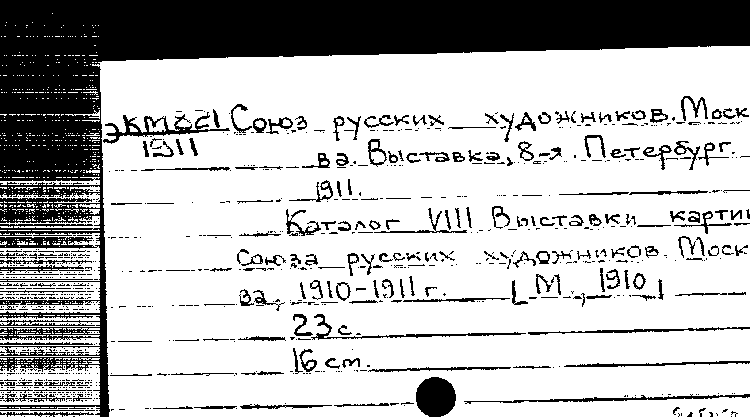 ЭКМ661 Союз русских художников. Моск
1911 ва. Выставка, 8-я. Петербург.
1911.
Каталог VIII Выставки картин
Союза русских художников. Моск
ва, 1910-1911 г. [М., 1910]
23 с.
16 ст.